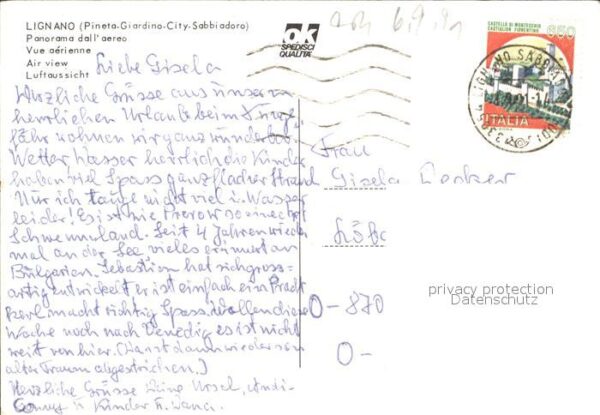 LIGNANO (Pineta-Giardino-City-Sabbiadoro)
Panorama dall'aereo
Vue aérienne
Air view
Luftaussicht
ok
SPEDISCI
QUALITÀ
6.9.91
CASTELLO DI MONTECCHIO
CASTIGLION FIORENTINO
650
ITALIA
Liebe Gisela
Herzliche Grüsse aus unserem
herrlichen Urlaub beim
wohnen wir ganz wunderbar
Wetter Wasser herrlich die Kinder
haben viel Spass ganz flacher Strand
Nur ich tauge nicht viel i. Wasser
leider! Es ist wie Prerow so ein echt
Schwemmland. Seit 4 Jahren wieder
mal an der See vieles erinnert an
Bulgarien. Sebastian hat sich gross=
artig entwickelt er ist einfach ein Pracht
kerl macht richtig Spass. Wollen diese
Woche noch nach Venedig es ist nicht
weit von hier. (Da ist dann wieder so ein
alter Traum abgestrichen.)
Herzliche Grüsse Deine Ursel, Andi-
Conny u Kinder
Frau
Gisela Becker
O-870
O-
privacy protection
Datenschutz